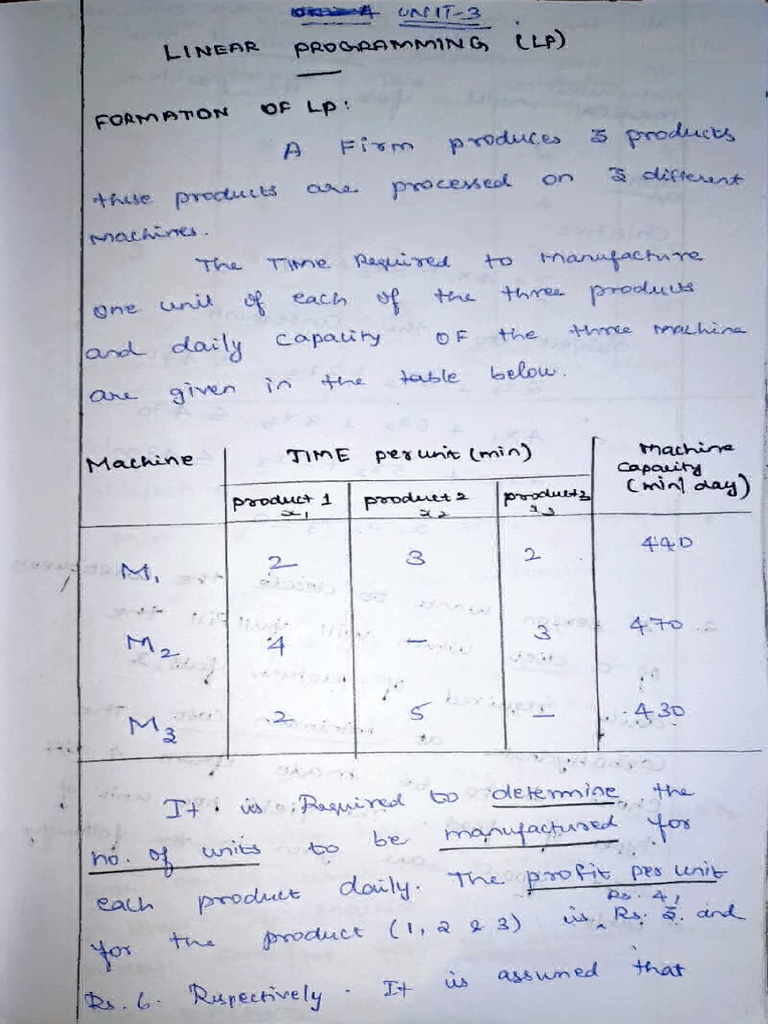 UNIT-3
LINEAR PROGRAMMING (LP)
FORMATION OF LP:
A Firm produces 3 products
these products are processed on 3 different
Machines.
The TIME Required to Manufacture
one unit of each of the three products
and daily capacity OF the three Machine
are given in the table below.
Machine TIME per unit (min) Machine capacity (min/day)
product 1 x₁ product 2 x₂ product 3 x₃
M₁ 2 3 2 440
M₂ 4 - 3 470
M₃ 2 5 - 430
It is Required to determine the
no. of units to be manufactured for
each product daily. The profit per unit
for the product (1, 2 & 3) is Rs. 4, Rs. 3. and
Rs. 6. Respectively. It is assumed that